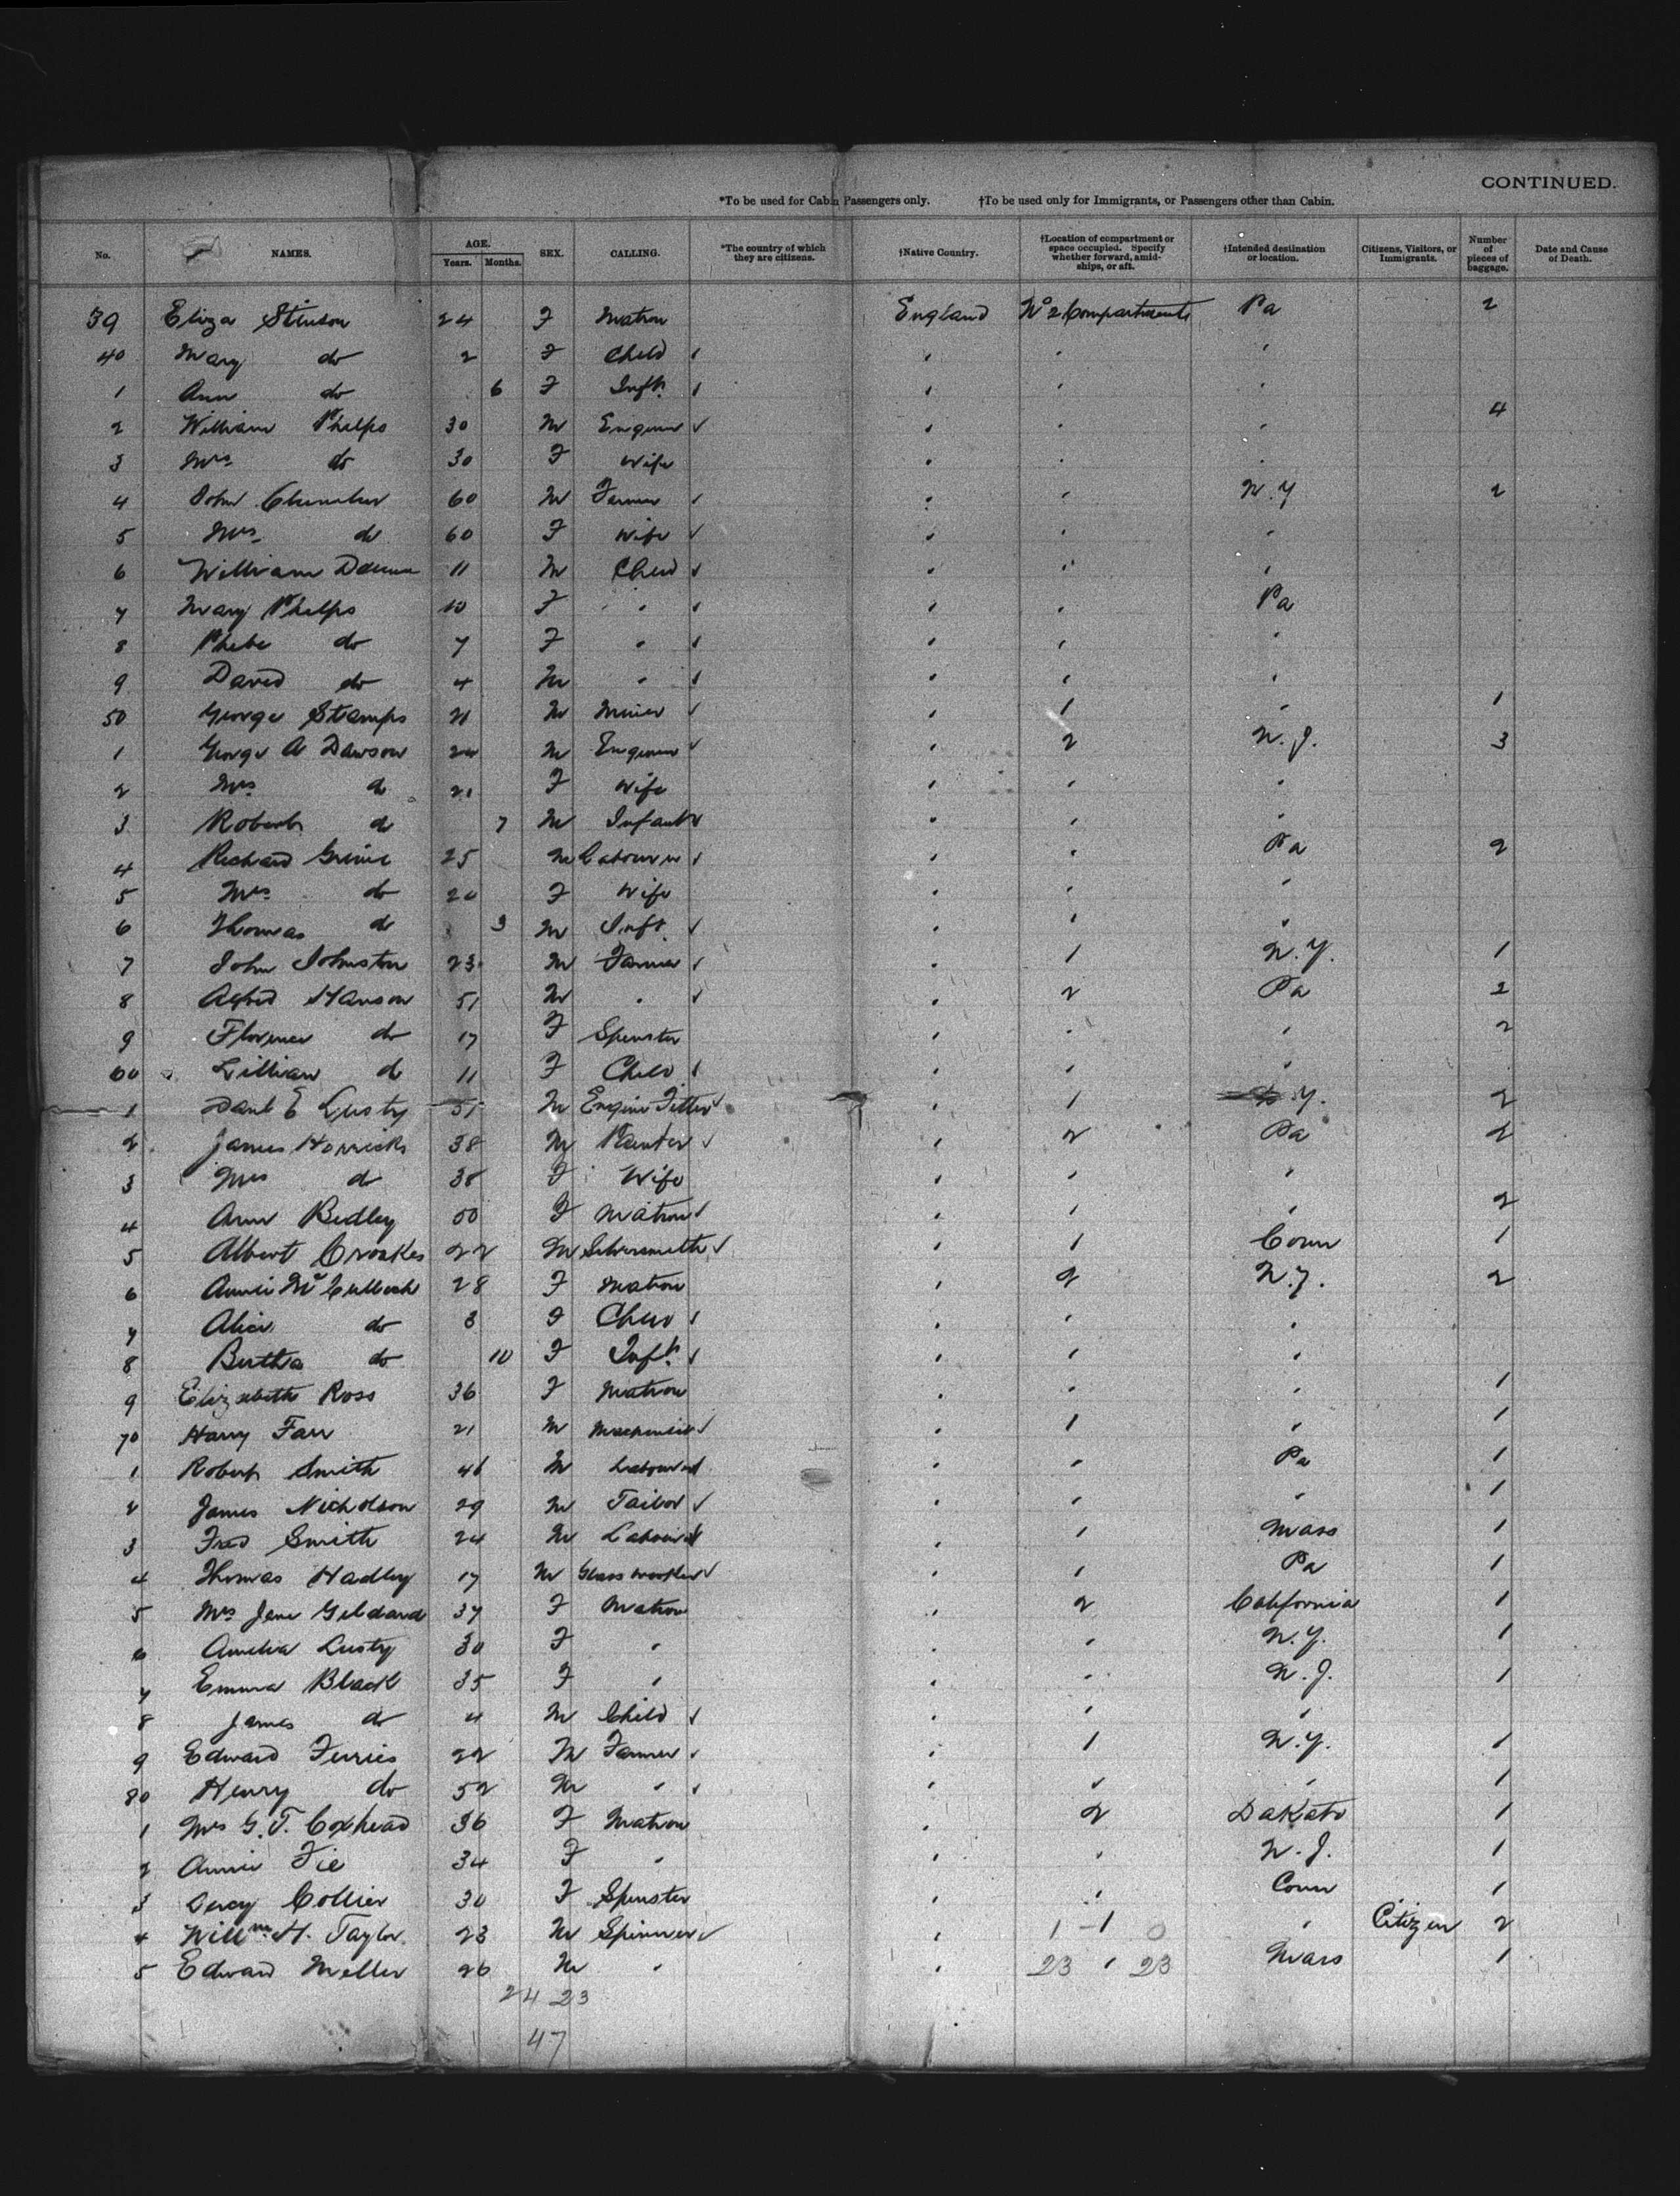 CONTINUED.
*To be used for Cabin Passengers only. †To be used only for Immigrants, or Passengers other than Cabin.
No. NAMES. AGE. Years. Months. SEX. CALLING. *The country of which they are citizens. †Native Country. †Location of compartment or space occupied. Specify whether forward, amidships, or aft. †Intended destination or location. Citizens, Visitors, or Immigrants. Number of pieces of baggage. Date and Cause of Death.
39 Eliza Stinson 24 F Matron England No 2 Compartments Pa 2
40 Mary do 2 F Child
1 Ann do 6 F Inft.
2 William Phelps 30 M Engineer 4
3 Mrs do 30 F Wife
4 John 60 M Farmer N.Y 2
5 Mrs do 60 F Wife
6 William 11 M Child
7 Mary Phelps 10 F " Pa
8 Phebe do 7 F "
9 David do 4 M "
50 George Stamps 21 M Miner " 1 " 1
1 George A Dawson 24 M Engineer " 2 N.J. 3
2 Mrs do 21 F Wife
3 Robert do 7 M Infant
4 Richard 25 M Labourer Pa 2
5 Mrs do 20 F Wife
6 Thomas do 3 M Inft.
7 John Johnston 23 M Farmer " 1 N.Y. 1
8 Alfred Hanson 51 M " " 2 Pa 2
9 Florence do 17 F Spinster 2
60 Lillian do 11 F Child
1 E Lusty 31 M Engine Fitter " 1 N.Y. 2
2 James Horricks 38 M " 2 Pa 2
3 Mrs do 38 F Wife
4 Ann Bedley 50 F Matron 2
5 Albert Croakes 22 M Silversmith " 1 Conn 1
6 Annie McCulloch 28 F Matron " 2 N.J. 2
7 Alice do 3 F Child
8 Bertha do 10 F Inft.
9 Elizabeth Ross 36 F Matron 1
70 Harry Farr 21 M Machinist " 1 " 1
1 Robert Smith 46 M Labourer Pa 1
2 James Nicholson 29 M Tailor 1
3 Fred Smith 24 M Labourer Mass 1
4 Thomas Hadley 17 M Glass worker Pa 1
5 Mrs Jane Gildard 37 F Matron " 2 California 1
6 Amelia Lusty 30 F " N.Y. 1
7 Emma Black 35 F " N.J. 1
8 James do 4 M Child
9 Edward Ferries 22 M Farmer " 1 N.Y. 1
80 Henry do 52 M " 1
1 Mrs G.T. Coxhead 36 F Matron " 2 Dakato 1
2 Annie Fie 34 F " N.J. 1
3 Collier 30 F Spinster Conn 1
4 Willm H. Taylor 23 M Spinner " 1 - 1 0 " Citizen 2
5 Edward Miller 26 M " 23 " 23 Mass 1
24 23
47